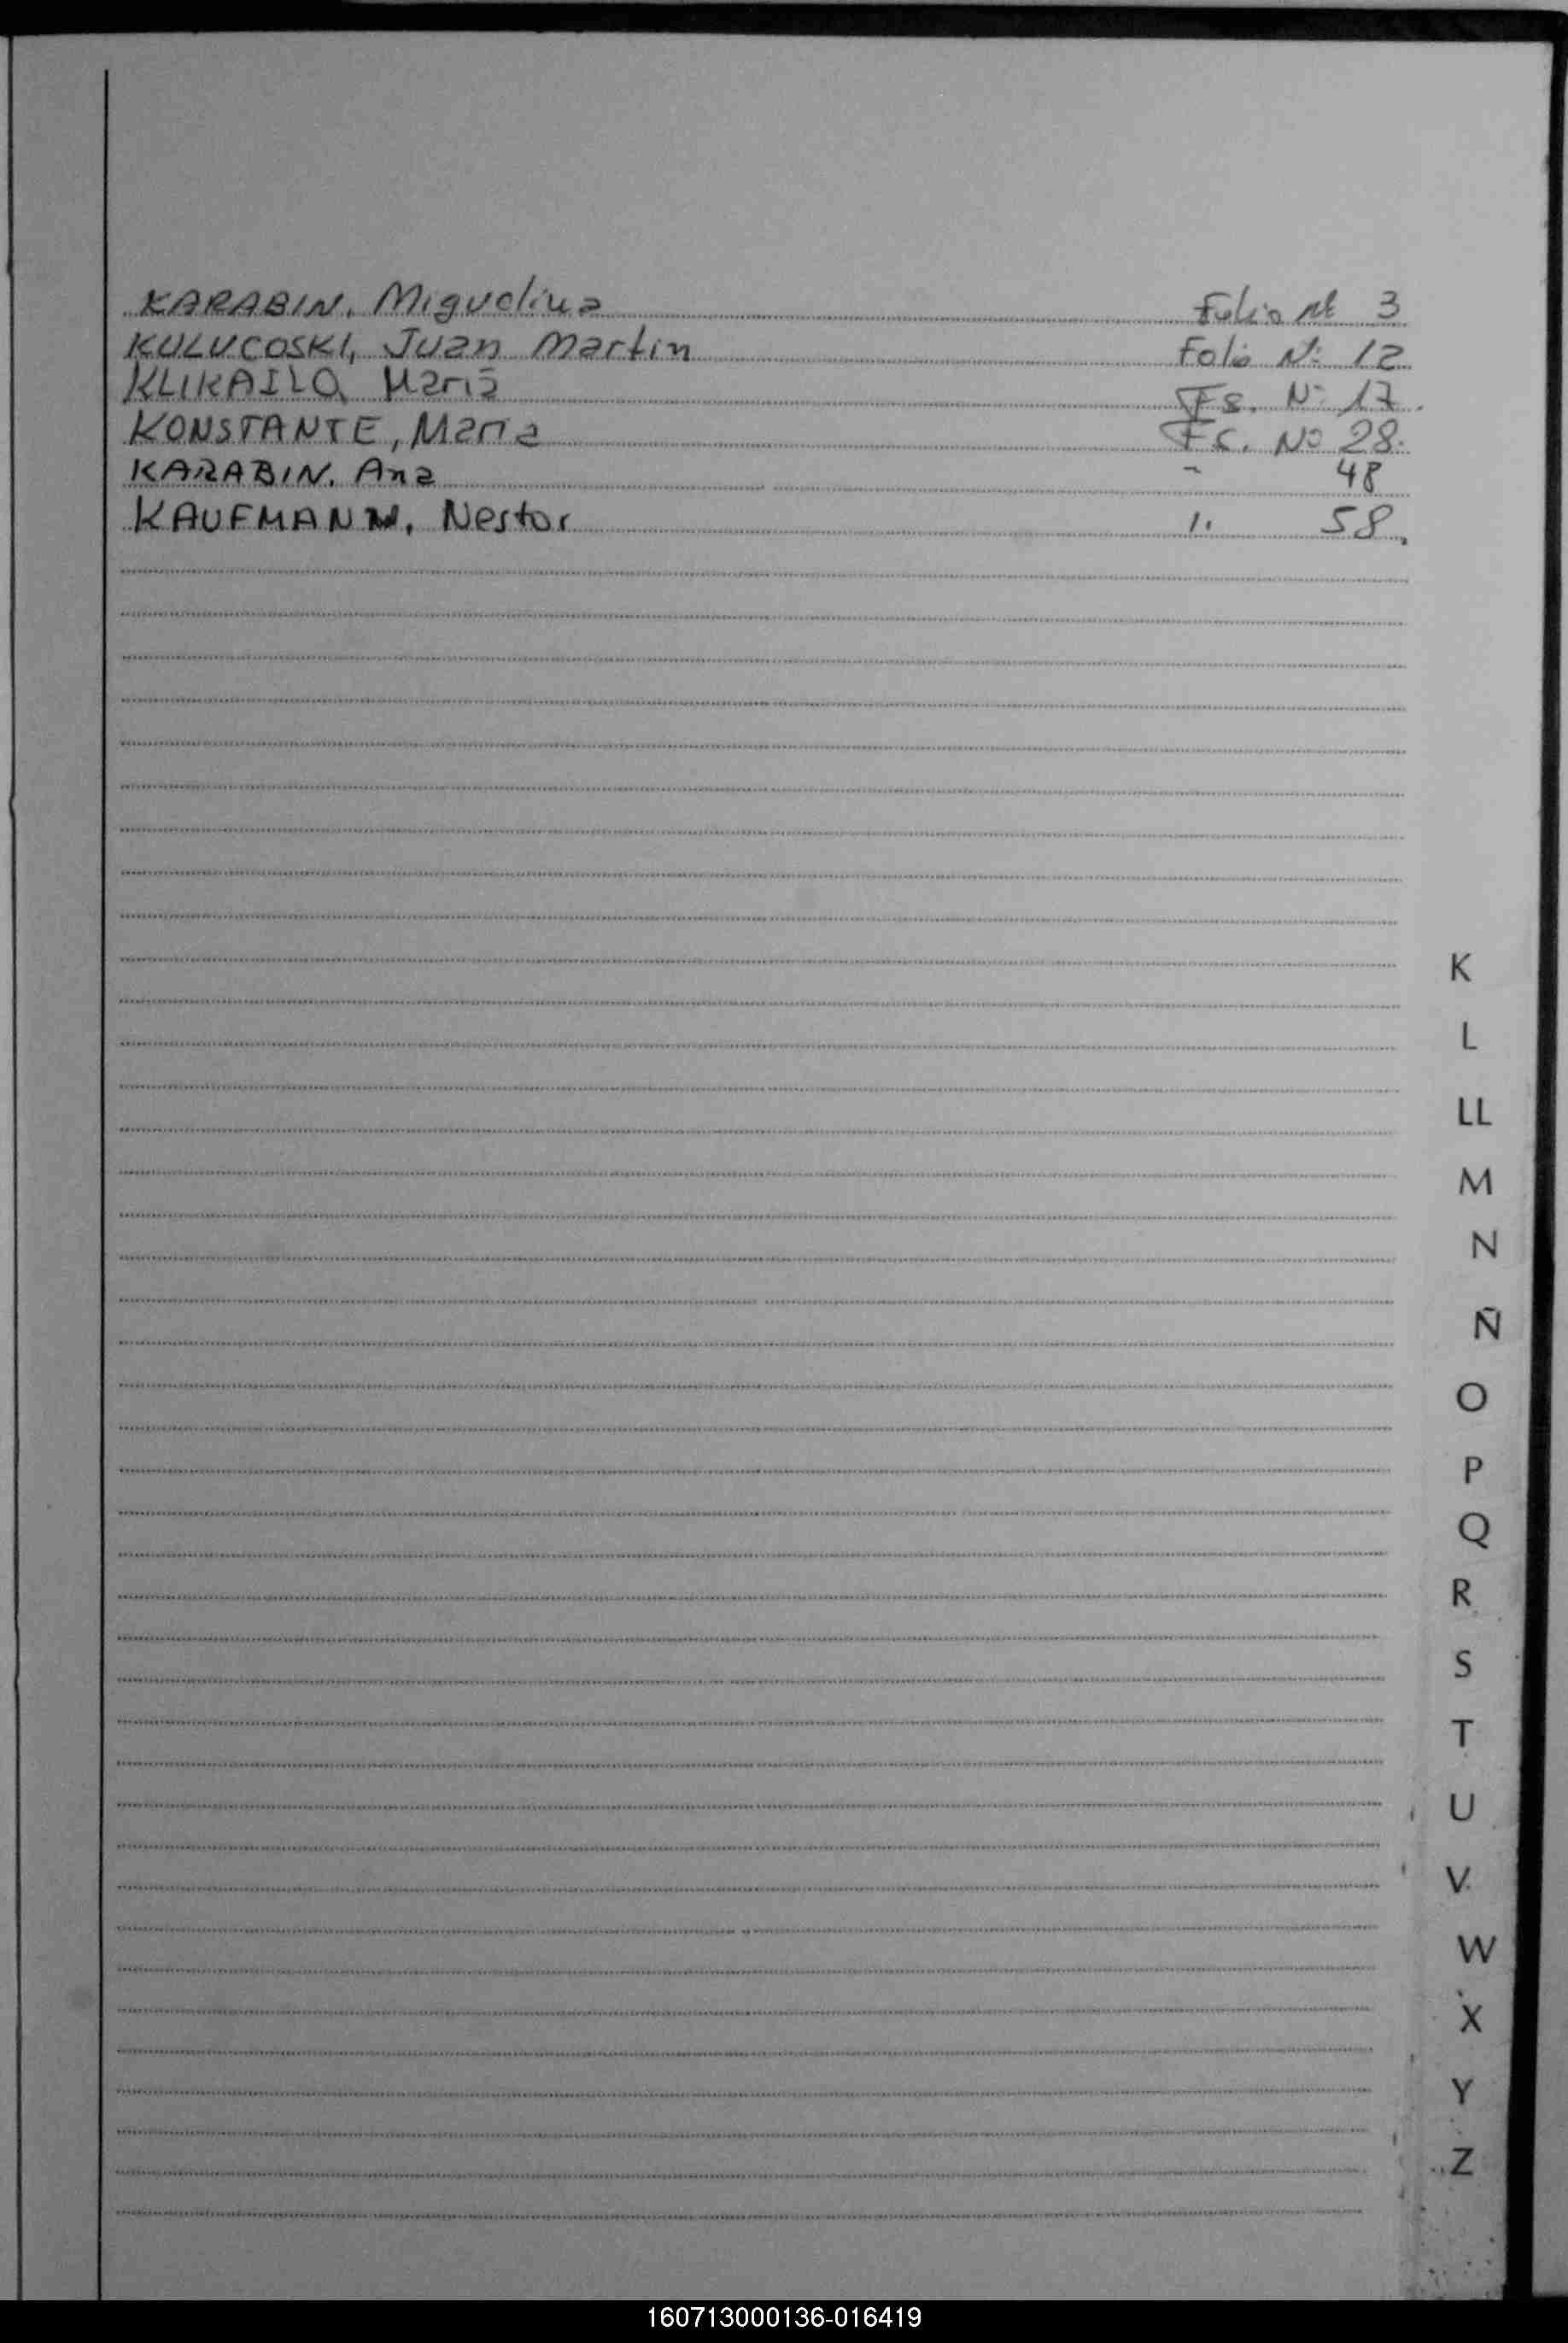 KARABIN, Miguelina Folio Nº 3
KULUCOSKI, Juan Martin Folio Nº 12
KLIKAILO, Maria Fs. Nº 17.
KONSTANTE, Maria Fs. Nº 28.
KARABIN, Ana ~ 48
KAUFMANN, Nestor 1. 58.
K
L
LL
M
N
Ñ
O
P
Q
R
S
T
U
V
W
X
Y
Z
160713000136-016419